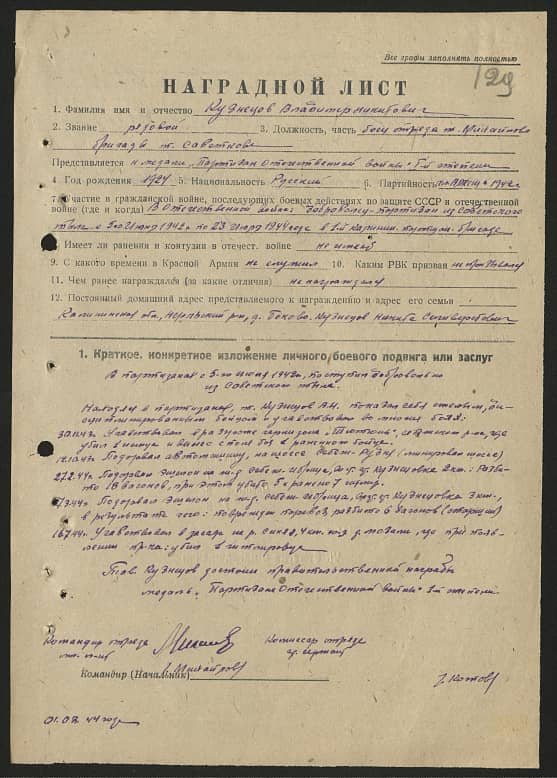 Все графы заполнять полностью
129
НАГРАДНОЙ ЛИСТ
1. Фамилия имя и отчество Кузнецов Владимир Никитович
2. Звание рядовой 3. Должность, часть боец отряда т. Михайлова
бригады т.
Представляется к медали "Партизан Отечественной войны" 1-й степени
4. Год рождения 1924 5. Национальность Русский 6. Партийность 1942 г
7. Участие в гражданской войне, последующих боевых действиях по защите СССР и отечественной
войне (где и когда) В Отечественной войне: доброволец-партизан из Советского
тыла с 5-го июня 1942 г по 23 1944 года в 1-й Калинин. бригаде
8. Имеет ли ранения и контузии в отечест. войне не имеет
9. С какого времени в Красной Армии не служил 10. Каким РВК призван не призывался
11. Чем ранее награждался (за какие отличия) не награждался
12. Постоянный домашний адрес представляемого к награждению и адрес его семьи
Калининская обл, Нерльский р-н, д. Кузнецов Никита
1. Краткое, конкретное изложение личного боевого подвига или заслуг
В партизанах с 5-го июня 1942 г, поступил добровольно
из Советского тыла.
Находясь в партизанах, т. Кузнецов В.Н. показал себя стойким, дис-
циплинированным бойцом и участвовал во многих боях.
участвовал при гарнизона р-на, где
убил немца и вынес с поля боя раненого бойца.
Подорвал автомашину, на шоссе Себеж-
27.2.44г. Подорвал эшелон на ж.д. Себеж-Идрица, д. Кузнецовка 2 км: Разби-
то 18 вагонов, при этом убито 5 и ранено 7 гитлер.
Подорвал эшелон на ж.д. Себеж-Идрица, д. Кузнецовка 3 км,
в результате чего: поврежден паровоз, разбито 6 вагонов
16.7.44г. Участвовал в засаде на р. Синяя, 4 км. д. где при появ-
лении пр-ка: убил гитлеровца
Тов. Кузнецов достоин правительственной награды
медаль "Партизан Отечественной войны" 1-й степени.
Командир отряда
Комиссар отряда
Командир (Начальник) Михайлов
01.08.44 года